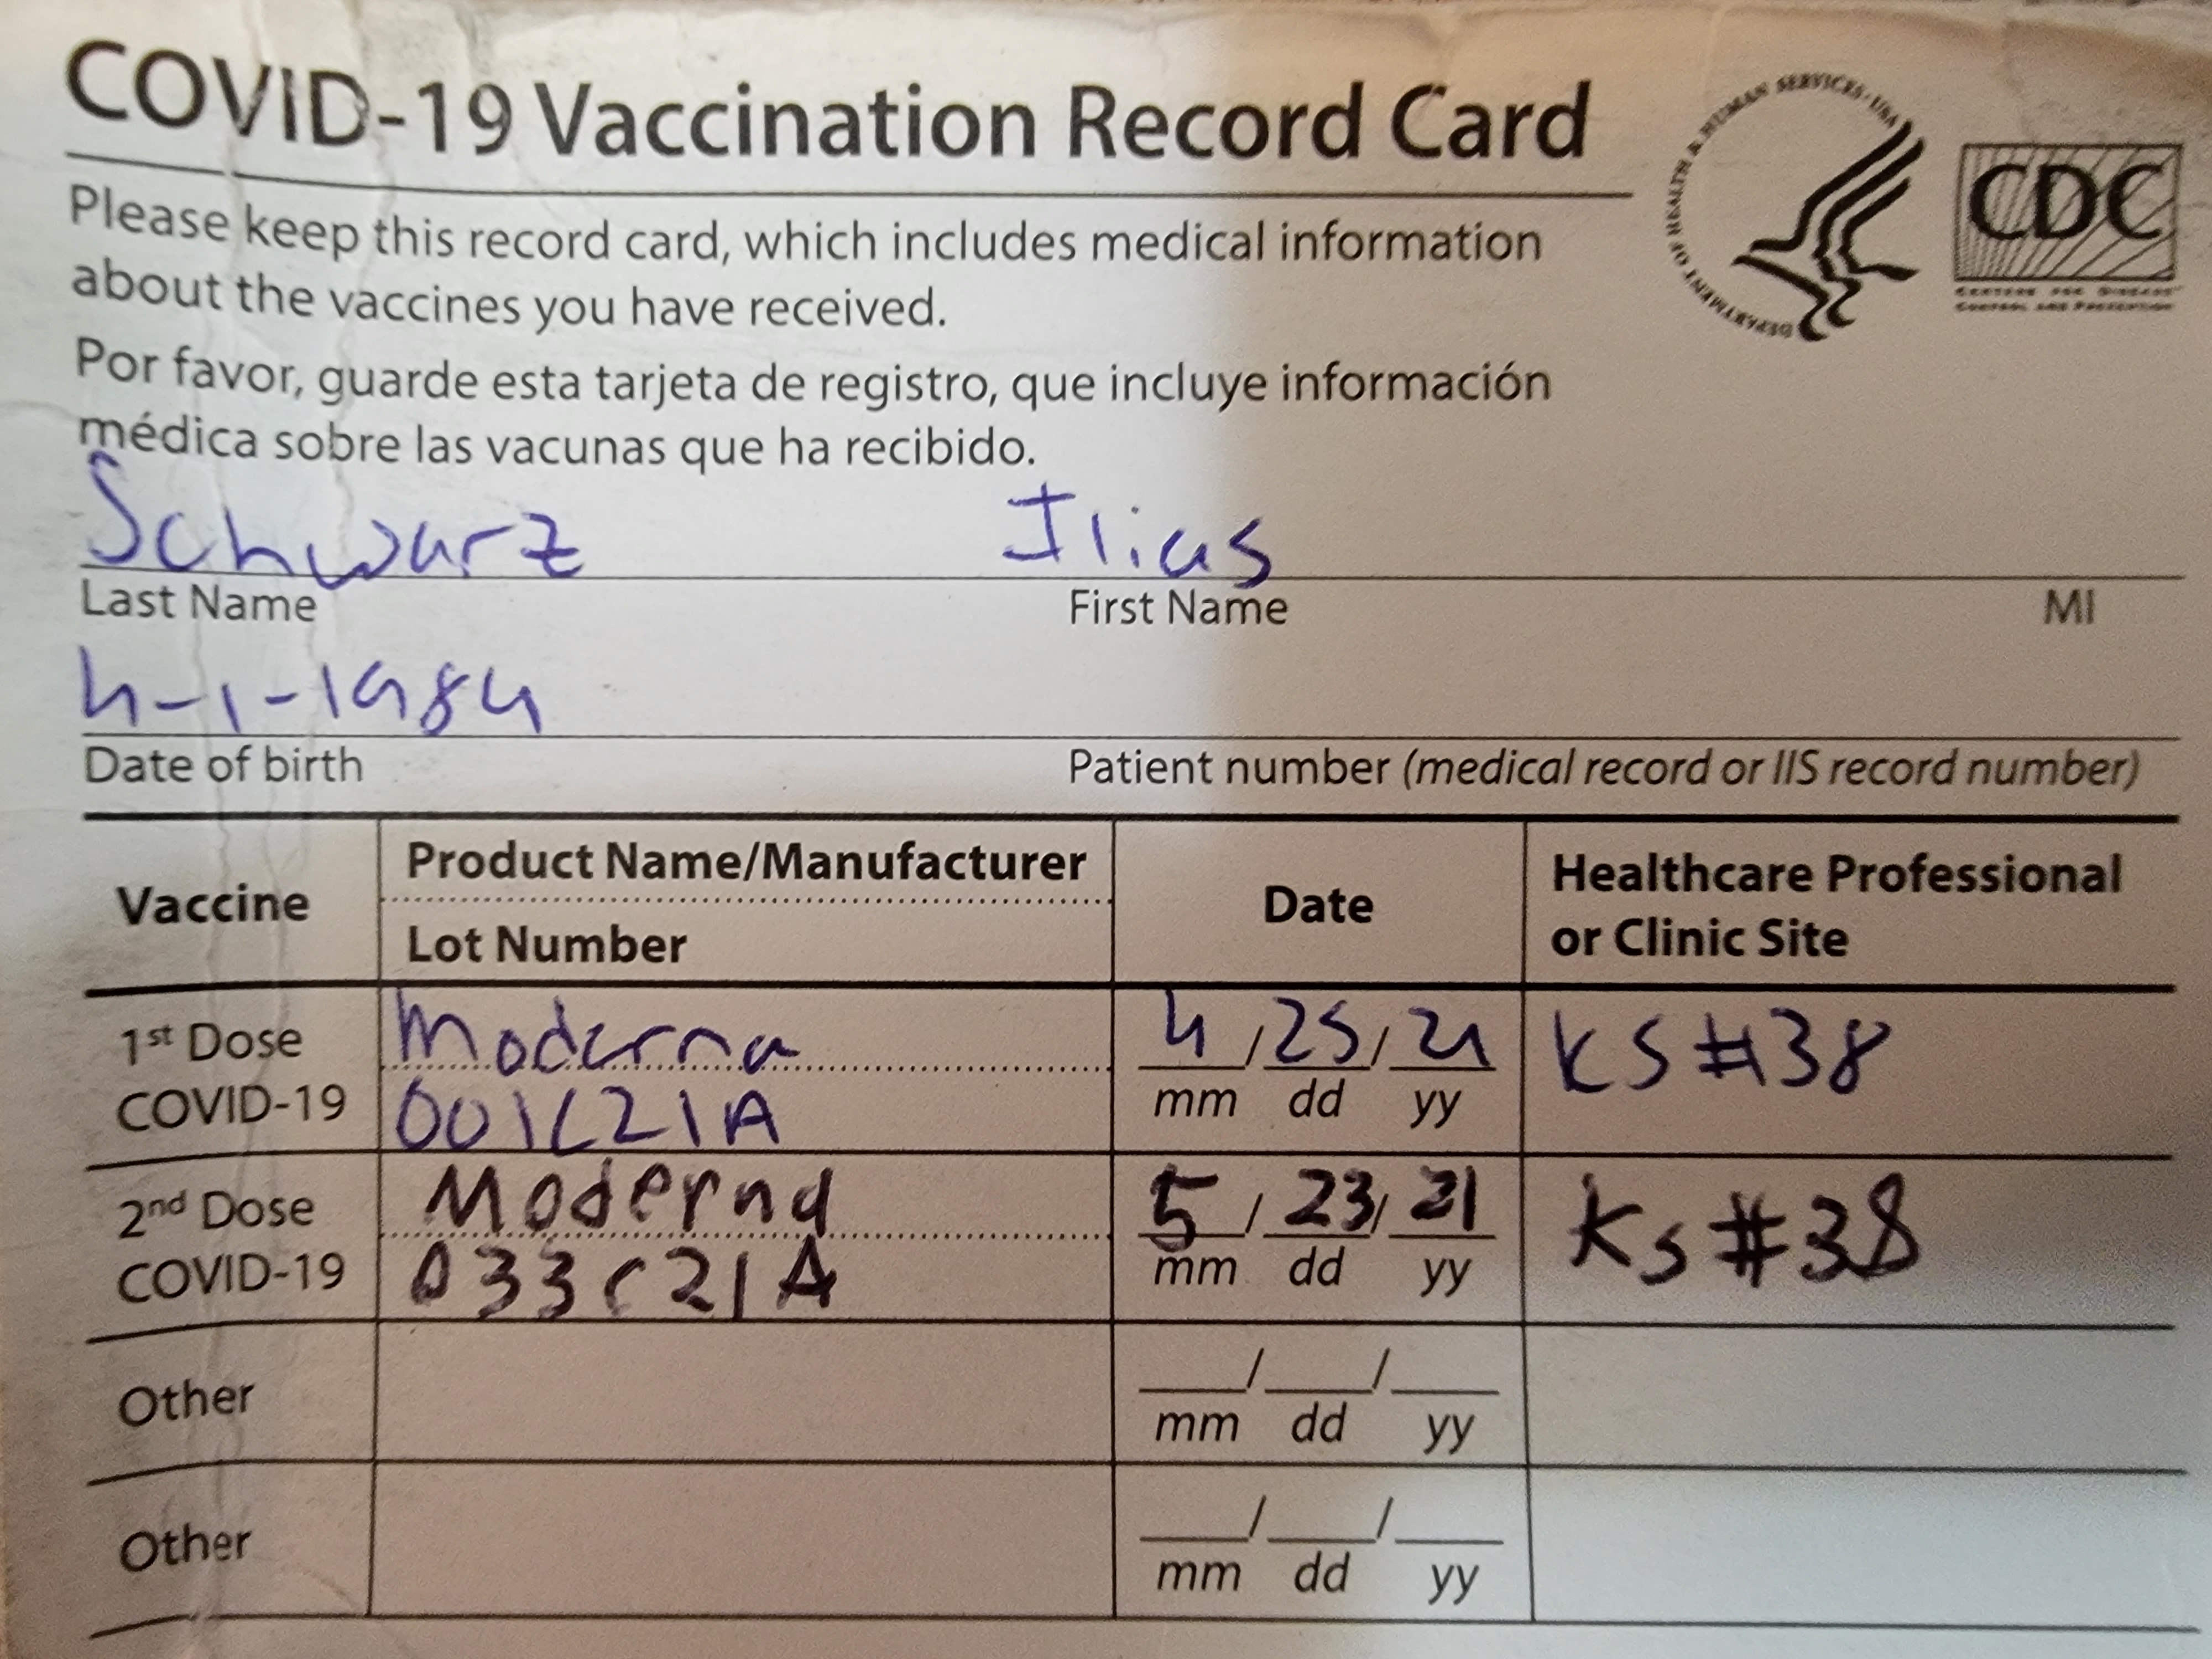 COVID-19 Vaccination Record Card
DEPARTMENT OF HEALTH & HUMAN SERVICES · USA
CDC
CENTERS FOR DISEASE
CONTROL AND PREVENTION
Please keep this record card, which includes medical information
about the vaccines you have received.
Por favor, guarde esta tarjeta de registro, que incluye información
médica sobre las vacunas que ha recibido.
Schwarz Ilias
Last Name First Name MI
4-1-1984
Date of birth Patient number (medical record or IIS record number)
Vaccine
Product Name/Manufacturer
Lot Number
Date
Healthcare Professional
or Clinic Site
1st Dose
COVID-19
Moderna
001C21A
4 / 25 / 21
mm dd yy
KS #38
2nd Dose
COVID-19
Moderna
033C21A
5 / 23 / 21
mm dd yy
Ks #38
Other
___/___/___
mm dd yy
Other
___/___/___
mm dd yy